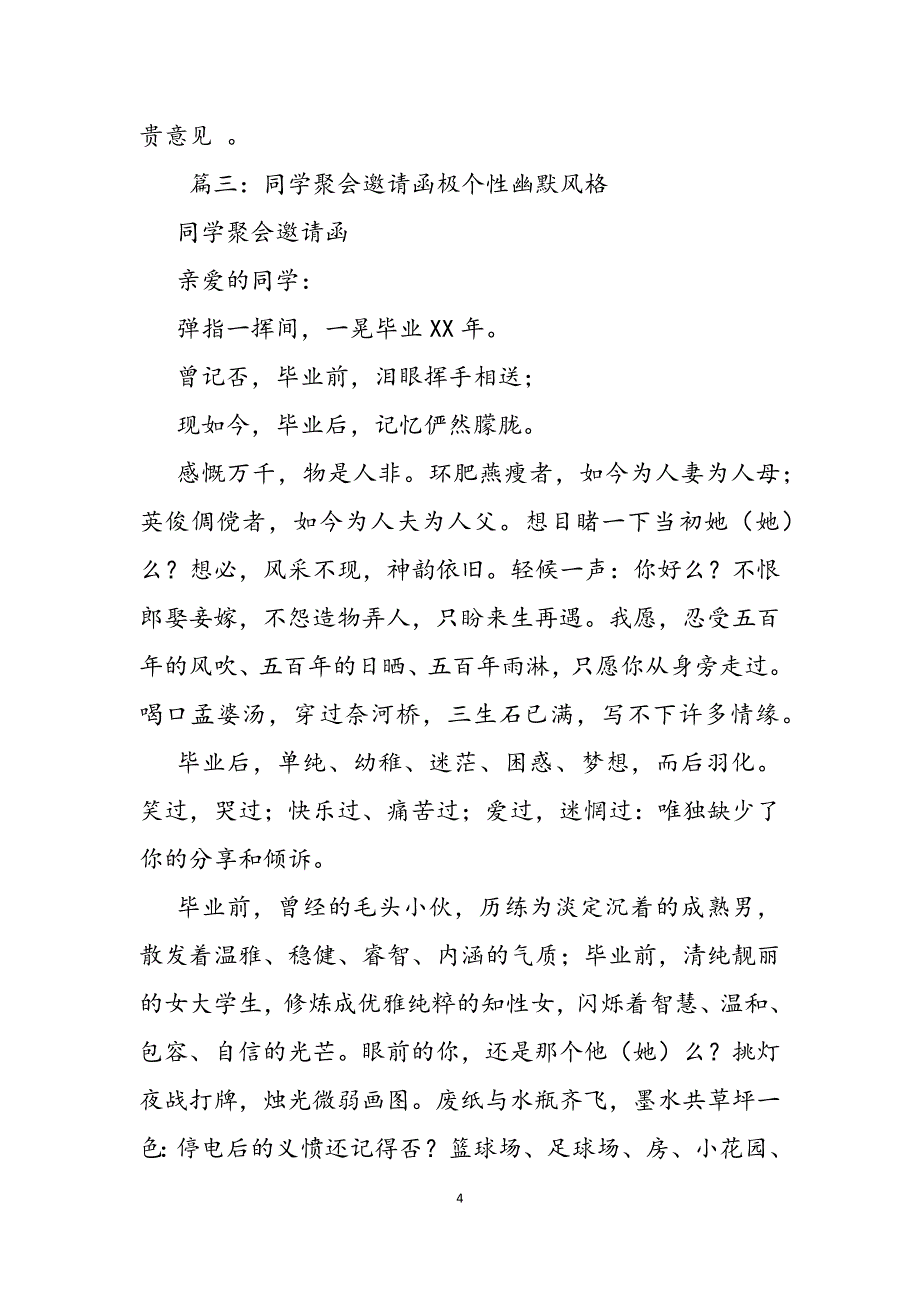 贵意见 。
篇三：同学聚会邀请函极个性幽默风格
同学聚会邀请函
亲爱的同学：
弹指一挥间，一晃毕业 XX 年。
曾记否，毕业前，泪眼挥手相送；
现如今，毕业后，记忆俨然朦胧。
感慨万千，物是人非。环肥燕瘦者，如今为人妻为人母；
英俊倜傥者，如今为人夫为人父。想目睹一下当初她（她）
么？想必，风采不现，神韵依旧。轻候一声：你好么？不恨
郎娶妾嫁，不怨造物弄人，只盼来生再遇。我愿，忍受五百
年的风吹、五百年的日晒、五百年雨淋，只愿你从身旁走过。
喝口孟婆汤，穿过奈河桥，三生石已满，写不下许多情缘。
毕业后，单纯、幼稚、迷茫、困惑、梦想，而后羽化。
笑过，哭过；快乐过、痛苦过；爱过，迷惘过：唯独缺少了
你的分享和倾诉。
毕业前，曾经的毛头小伙，历练为淡定沉着的成熟男，
散发着温雅、稳健、睿智、内涵的气质；毕业前，清纯靓丽
的女大学生，修炼成优雅纯粹的知性女，闪烁着智慧、温和、
包容、自信的光芒。眼前的你，还是那个他（她）么？挑灯
夜战打牌，烛光微弱画图。废纸与水瓶齐飞，墨水共草坪一
色：停电后的义愤还记得否？篮球场、足球场、房、小花园、
4